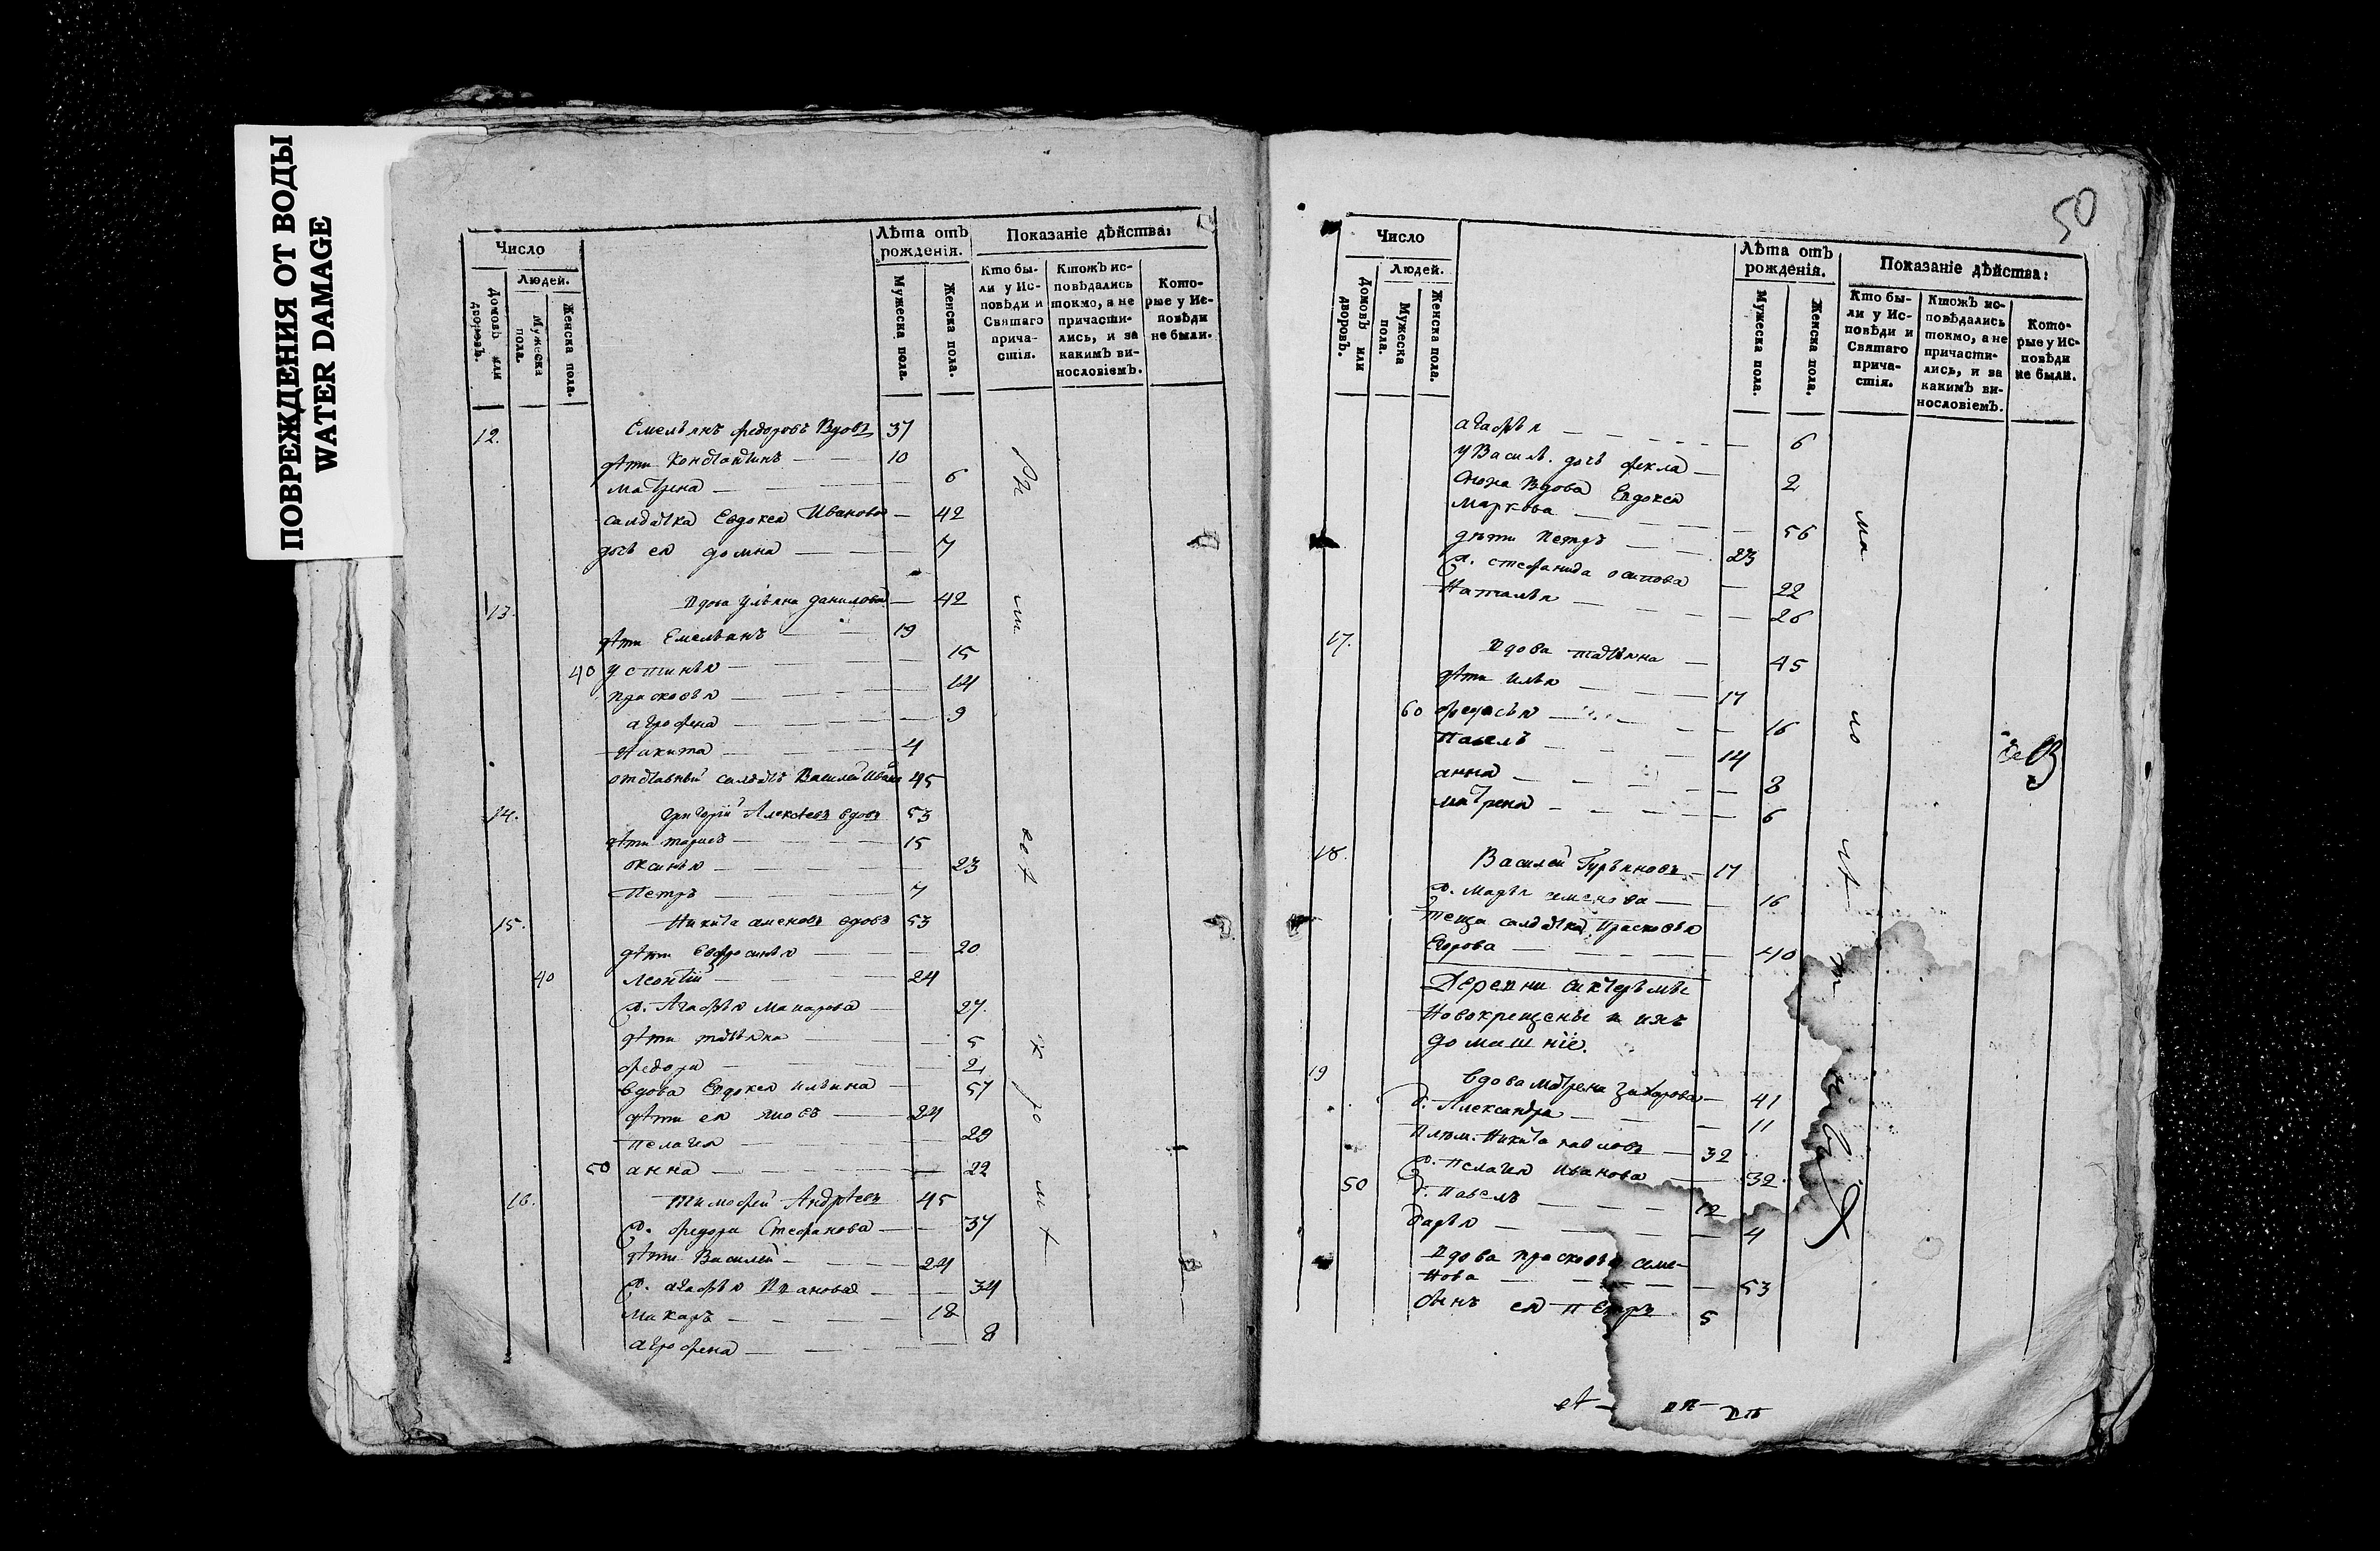 ПОВРЕЖДЕНИЯ ОТ ВОДЫ
WATER DAMAGE
Число
Людей.
Домовъ или дворовъ.
Мужеска пола.
Женска пола.
Лѣта отъ рожденія.
Мужеска пола.
Женска пола.
Показаніе дѣйства:
Кто бы-
ли у Ис-
повѣди и
Святаго
прича-
стія.
Ктожъ ис-
повѣдались
токмо, а не
причасти-
лись, и за
какимъ ви-
нословіемъ.
Кото-
рые у Ис-
повѣди
не были.
12. Емельянъ Федоровъ Вдовъ 37
дѣти Константинъ 10
Матрена 6
салдатка Евдокея Иванова 42
дочь ея домна 7
13. Вдова Ульяна данилова 42
дѣти Емельянъ 19
40 устинья 15
прасковья 14
агрофена 9
Никита 4
отставный салдатъ Василей Ивано 45
14. Григорій Алексѣевъ вдовъ 53
дѣти 15
оксинья 23
Петръ 7
15. Никита вдовъ 53
дѣти Евфросинья 20
40 Леонтій 24
ж. Агафья Макарова 27.
дѣти татьяна 5
федора 2
вдова Евдокея ильина 57
дѣти ея 24
пелагея 29
50 анна 22
16. Тимофей Андрѣевъ 45
ж. федора Стефанова 37
дѣти Василей 24
ж. агафья Иванова 34
Макаръ 18
агрофена 8
50
Число
Людей.
Домовъ или дворовъ.
Мужеска пола.
Женска пола.
Лѣта отъ рожденія.
Мужеска пола.
Женска пола.
Показаніе дѣйства:
Кто бы-
ли у Ис-
повѣди и
Святаго
прича-
стія.
Ктожъ ис-
повѣдались
токмо, а не
причасти-
лись, и за
какимъ ви-
нословіемъ.
Кото-
рые у Ис-
повѣди
не были.
агафья 6
у Василь. дочь фекла 2
сноха Вдова Евдокея
Маркова 56
дѣти Петръ 23
ж. стефанида осипова 22
Наталья 26
17. Вдова татьяна 45
дѣти илья 17
60 федосья 16
Павелъ 14
анна 8
матрена 6
18. Василей Гурьяновъ 17
ж. Марья семенова 16
теща салдатка Прасковья
Егорова 40
Деревни
Новокрещены и ихъ
домашніе.
19 вдова Матрена Захарова 41
д. Александра 11
плем. Никита павловъ 32
ж. пелагея Иванова 32
50 д. павелъ 12
дарья 4
вдова прасковья семе-
нова 53
сынъ ея петръ 5